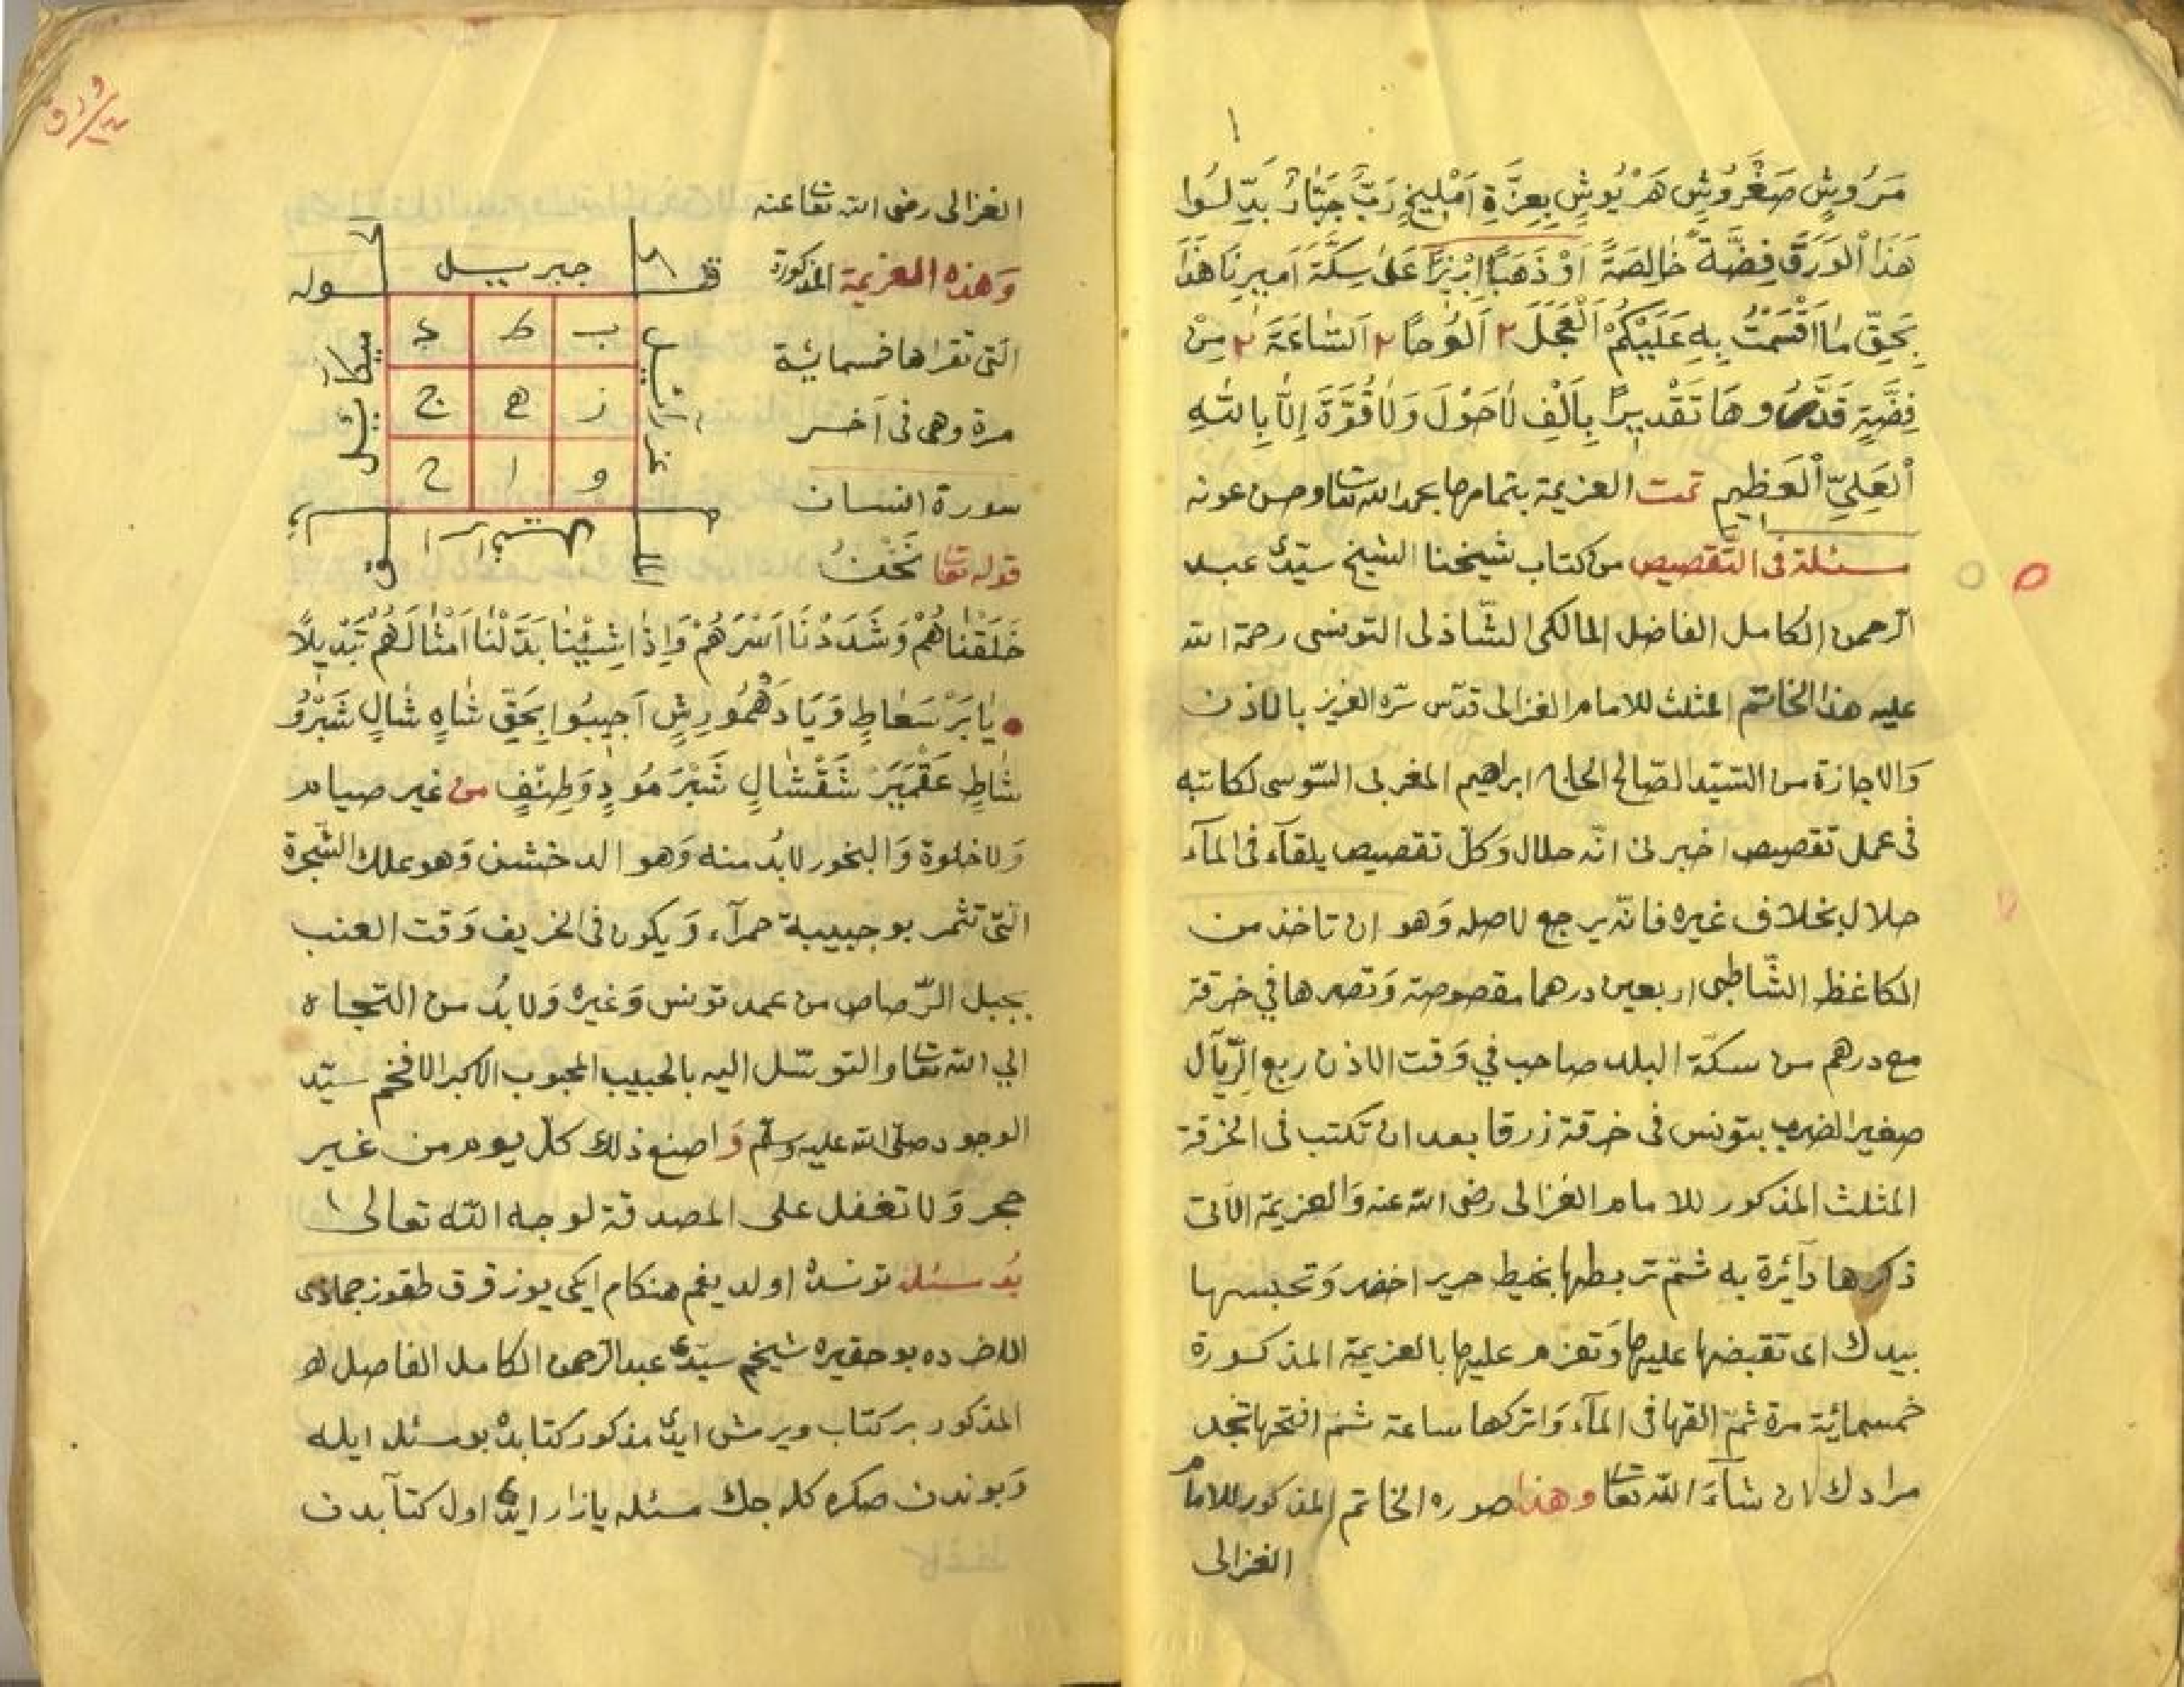 مَرُوشٍ صَغْرُوشٍ هَرْيُوشٍ بِعِزَّةِ اَمْلِيخٍ رَبٌّ جَبَّارٌ بَدِّلُوا
هَذَا الْوَرَقَ فِضَّةً خَالِصَةً اَوْ ذَهَبًا اِبْرِيزًا عَلَى سِكَّةِ اَمِيرِنَا هَذَا
بِحَقِّ مَا اَقْسَمْتُ بِهِ عَلَيْكُمْ اَلْعَجَلَ ٢ اَلْوَحًا ٢ اَلسَّاعَةَ ٢ مِنْ
فِضَّةٍ قَدَّرُوهَا تَقْدِيرًا بِاَلْفِ لَاحَوْلَ وَلَا قُوَّةَ اِلَّا بِاللّٰهِ
الْعَلِيِّ الْعَظِيمِ تمت العزيمة بتمامها بحمد الله تعا وحسن عونه
مسئلة فى التّقصيص من كتاب شيخنا الشيخ سيّدى عبد
الرحمن الكامل الفاضل المالكى الشّاذلى التونسى رحمة الله
عليه هذا الخاتم المثلث للامام الغزالى قدّس سرّه العزيز بالاذن
وَالاجازة من السّيّد الصّالح الحاج ابراهيم المغربى السّوسى لكاتبه
فى عمل تقصيص اخبرنى انّه حلال وَكلّ تقصيص يلقآء فى المآء
حلال بخلاف غيره فانّه يرجع لاصله وَهو ان تاخذ من
الكاغظ الشّاطبى اربعين درهما مقصوصة وَتصرها في خرقة
مع درهم من سكّة البلد صاحب في وَقت الاذن ربع الرّيآل
صغير الضرب بتونس فى خرقة زرقا بعد ان تكتب فى الخرقة
المثلث المذكور للامام الغزالى رضى الله عنه وَالعزيمة الآتى
ذكرها دآئرة به ثمّ تربطها بخيط حرير اخضر وَتحبسها
بيدك اى تقبضها عليها وَتعزم عليها بالعزيمة المذكورة
خمسمائية مرة ثمّ القها فى المآء وَاتركها ساعة ثم افتحها تجد
مرادك ان شآء الله تعا وهذا صورة الخاتم المذكور للامام
الغزالى
الغزالى رضى الله تعا عنه
وَهذه العزيمة المذكورة
الّتى تقراها خمسمائية
مرة وهى فى آخر
سورة الانسان
قوله تعا نَحْنُ
قو
له
جبريل
ميكآئيل
عزرآئيل
ب ط د
ز ه ج
و ا ح
خَلَقْنَاهُمْ وَشَدَدْنَا اَسْرَهُمْ وَاِذَا شِئْنَا بَدَّلْنَا اَمْثَالَهُمْ تَبْدِيلًا
يَا بَرْسَعَاطٍ وَيَا دَهْمُورِشٍ اَجِيبُوا بِحَقِّ شَاهٍ شَالٍ شَبْرُو
شَاطٍ عَقْمَيَرَ شَقْشَالٍ شَبْرَمُودٍ وَطِنْفٍ من غير صيام
وَلا خلوة وَالبخور لابُد منه وَهو الدخشن وَهو علك الشّجرة
الّتى تثمر بوحبيبة حمرآء وَيكون فى الخريف وَقت العنب
بجبل الرّصاص من عمد تونس وَغيره وَلابُد من التجاه
الي الله تعا والتوسّل اليه بالحبيب المحبوب الاكبر الافخم سيّد
الوجود صلّى الله عليه وسلّم وَاصنع ذلك كلّ يوم من غير
حجر وَلا تغفل على المصدقة لوجه الله تعالى
بُو مسئله تونسدْه اولديغم هنكام ايكى يوز قرق طقوز جماذى
الاخرده بو حقيره شيخم سيّدى عبد الرحمن الكامل الفاضل
المذكور بر كتاب ويرمش ايدى مذكور كتابدْه بو مسئله ايله
وَبوندن صكره كله جك مسئله يازار ايدى اول كتآبدن